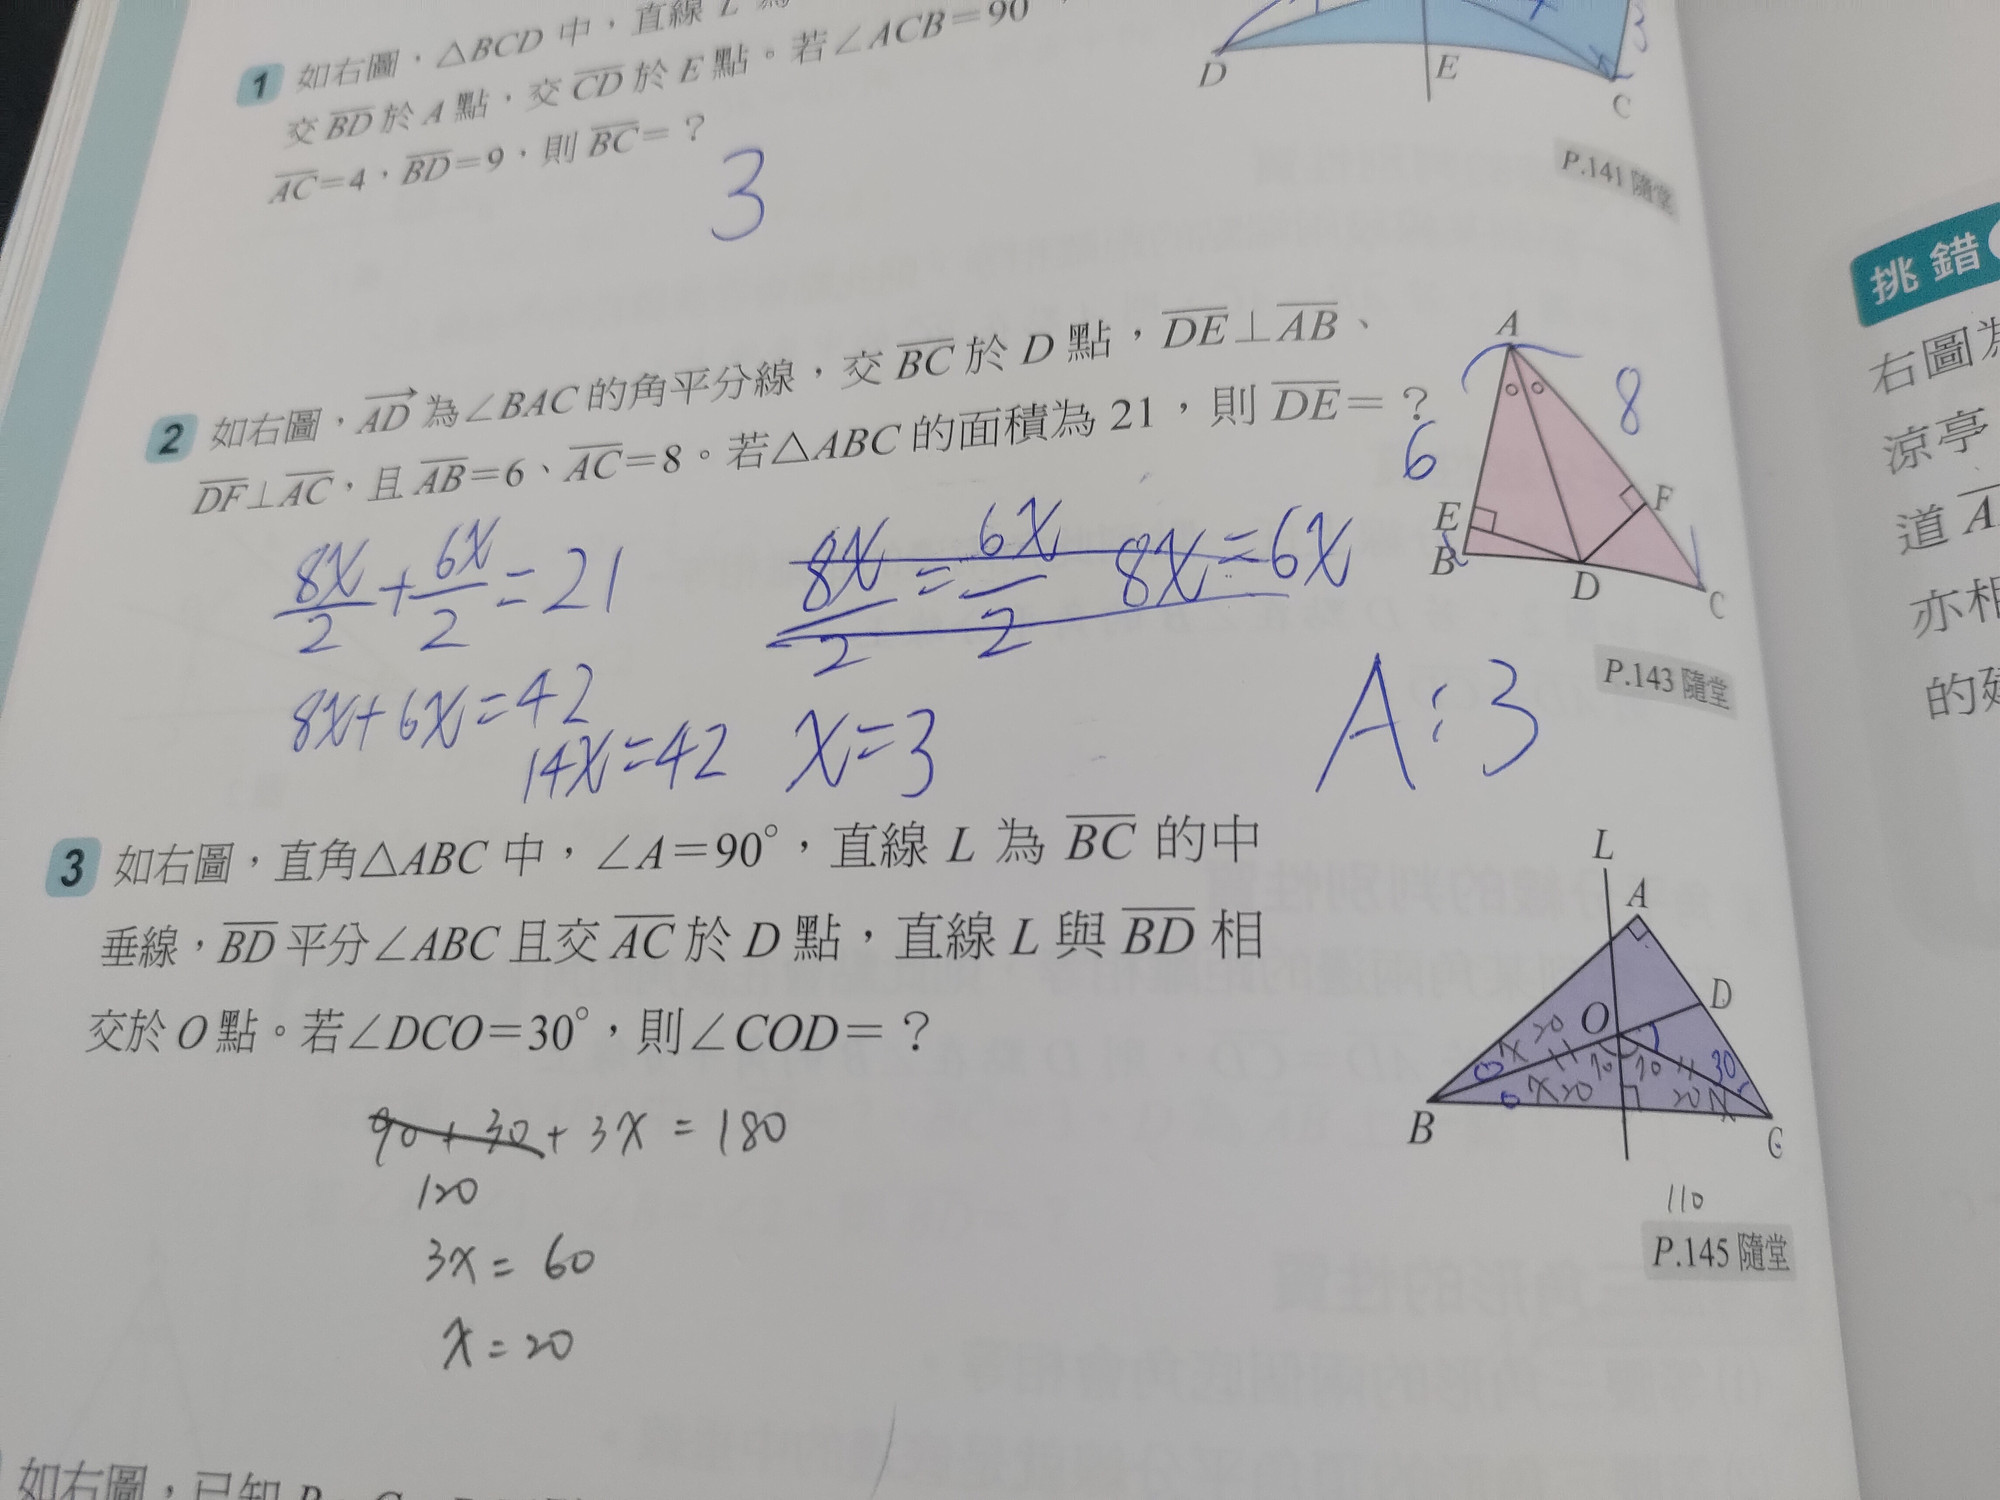 1 如右圖，△BCD 中，直線 L 為
交 BD 於 A 點，交 CD 於 E 點。若∠ACB＝90
AC＝4，BD＝9，則 BC＝？
3
D
E
C
3
P.141 隨堂
2 如右圖，AD 為∠BAC 的角平分線，交 BC 於 D 點，DE⊥AB、
DF⊥AC，且 AB＝6、AC＝8。若△ABC 的面積為 21，則 DE＝？
A
8
6
E
F
B
D
C
8x/2 + 6x/2 = 21
8x/2 = 6x/2 8x = 6x
8x + 6x = 42
14x = 42 x = 3
A：3
P.143 隨堂
3 如右圖，直角△ABC 中，∠A＝90°，直線 L 為 BC 的中
垂線，BD 平分∠ABC 且交 AC 於 D 點，直線 L 與 BD 相
交於 O 點。若∠DCO＝30°，則∠COD＝？
90 + 30 + 3x = 180
120
3x = 60
x = 20
L
A
D
O
x 20
30
70 70
x 20
20 x
B
C
110
P.145 隨堂
如右圖，已知
挑錯
右圖為
涼亭
道 A
亦相
的建